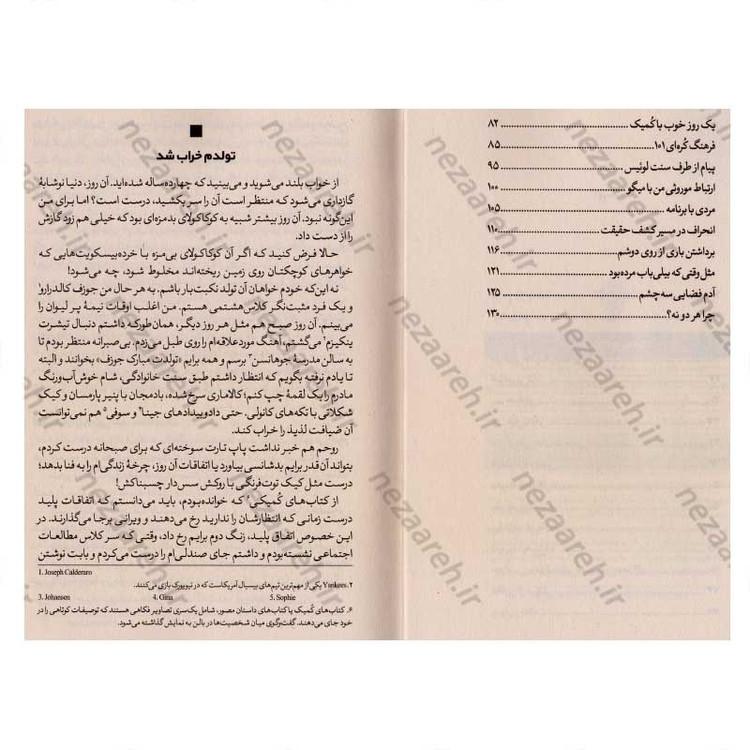 یک روز خوب با کُمیک ........ ۸۲
فرهنگ کُره‌ای ۱۰۱ ........ ۸۵
پیام از طرف سنت لوئیس ........ ۹۵
ارتباط موروثی من با میگو ........ ۱۰۰
مردی با برنامه ........ ۱۰۵
انحراف در مسیر کشف حقیقت ........ ۱۱۰
برداشتن بازی از روی دوشم ........ ۱۱۶
مثل وقتی که بیلی‌باب مرده بود ........ ۱۲۱
آدم فضایی سه‌چشم ........ ۱۲۵
چرا هر دو نه؟ ........ ۱۳۰
تولدم خراب شد
از خواب بلند می‌شوید و می‌بینید که چهارده‌ساله شده‌اید. آن روز، دنیا نوشابهٔ
گازداری می‌شود که منتظر است آن را سر بکشید، درست است؟ اما برای من
این‌گونه نبود. آن روز بیشتر شبیه به کوکاکولای بدمزه‌ای بود که خیلی هم زود گازش
را از دست داد.
حالا فرض کنید که اگر آن کوکاکولای بی‌مزه با خرده‌بیسکویت‌هایی که
خواهرهای کوچکتان روی زمین ریخته‌اند مخلوط شود، چه می‌شود!
نه این‌که خودم خواهان آن تولد نکبت‌بار باشم. به هر حال من جوزف کالدرارو۱
و یک فرد مثبت‌نگر کلاس‌هشتمی هستم. من اغلب اوقات نیمهٔ پر لیوان را
می‌بینم. آن روز صبح هم مثل هر روز دیگر، همان‌طور که داشتم دنبال تیشرت
ینکیزم۲ می‌گشتم، آهنگ مورد علاقه‌ام را روی طبل می‌زدم. بی‌صبرانه منتظر بودم تا
به سالن مدرسهٔ جوهانسن۳ برسم و همه برایم «تولدت مبارک جوزف» بخوانند و البته
تا یادم نرفته بگویم که انتظار داشتم طبق سنت خانوادگی، شام خوش‌آب‌ورنگ
مادرم را یک لقمهٔ چپ کنم؛ کالاماری سرخ‌شده، بادمجان با پنیر پارمسان و کیک
شکلاتی با تکه‌های کانولی. حتی دادوبیدادهای جینا۴ و سوفی۵ هم نمی‌توانست
آن ضیافت لذیذ را خراب کند.
روحم هم خبر نداشت پاپ تارت سوخته‌ای که برای صبحانه درست کردم،
بتواند آن‌قدر برایم بدشانسی بیاورد یا اتفاقات آن روز، چرخهٔ زندگی‌ام را به فنا بدهد؛
درست مثل کیک توت‌فرنگی با روکش سس‌دار چسبناکش!
از کتاب‌های کُمیکی۶ که خوانده بودم، باید می‌دانستم که اتفاقات پلید
درست زمانی که انتظارشان را ندارید رخ می‌دهند و ویرانی برجا می‌گذارند. در
این خصوص اتفاق پلید، زنگ دوم برایم رخ داد، وقتی که سر کلاس مطالعات
اجتماعی نشسته بودم و داشتم جای صندلی‌ام را درست می‌کردم و بابت نوشتن
1. Joseph Calderaro
۲. Yankees یکی از مهم‌ترین تیم‌های بیسبال آمریکاست که در نیویورک بازی می‌کنند.
3. Johansen 4. Gina 5. Sophie
۶. کتاب‌های کُمیک یا کتاب‌های داستان مصور، شامل یک‌سری تصاویر فکاهی هستند که توصیفات کوتاهی را در
خود جای می‌دهند. گفت‌وگوی میان شخصیت‌ها در بالن به نمایش گذاشته می‌شود.
nezaareh.ir